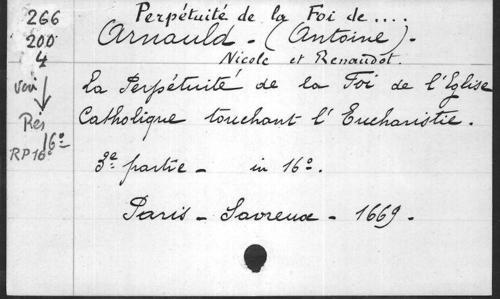 Perpétuité de la Foi de ....
266
200
4
Arnauld - (Antoine) -
Nicole et Renaudot.
voir
La Perpétuité de la Foi de l'Eglise
Rés
16º
Catholique touchant l'Eucharistie.
RP16º
3e partie - in 16º.
Paris - Savreux - 1669.